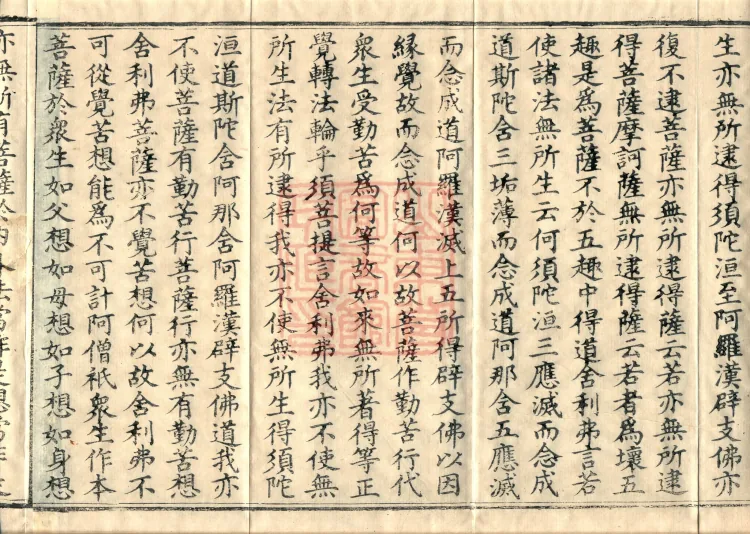 生亦無所逮得須陀洹至阿羅漢辟支佛亦
復不逮菩薩亦無所逮得薩云若亦無所逮
得菩薩摩訶薩無所逮得薩云若者爲壞五
趣是爲菩薩不於五趣中得道舍利弗言若
使諸法無所生云何須陀洹三應滅而念成
道斯陀舍三垢薄而念成道阿那舍五應滅
而念成道阿羅漢滅上五所得辟支佛以因
緣覺故而念成道何以故菩薩作勤苦行代
衆生受勤苦爲何等故如來無所著得等正
覺轉法輪乎須菩提言舍利弗我亦不使無
所生法有所逮得我亦不使無所生得須陀
洹道斯陀舍阿那舍阿羅漢辟支佛道我亦
不使菩薩有勤苦行菩薩行亦無有勤苦想
舍利弗菩薩亦不覺苦想何以故舍利弗不
可從覺苦想能爲不可計阿僧祇衆生作本
菩薩於衆生如父想如母想如子想如身想
亦無所有菩薩於內外法當作是想當作是